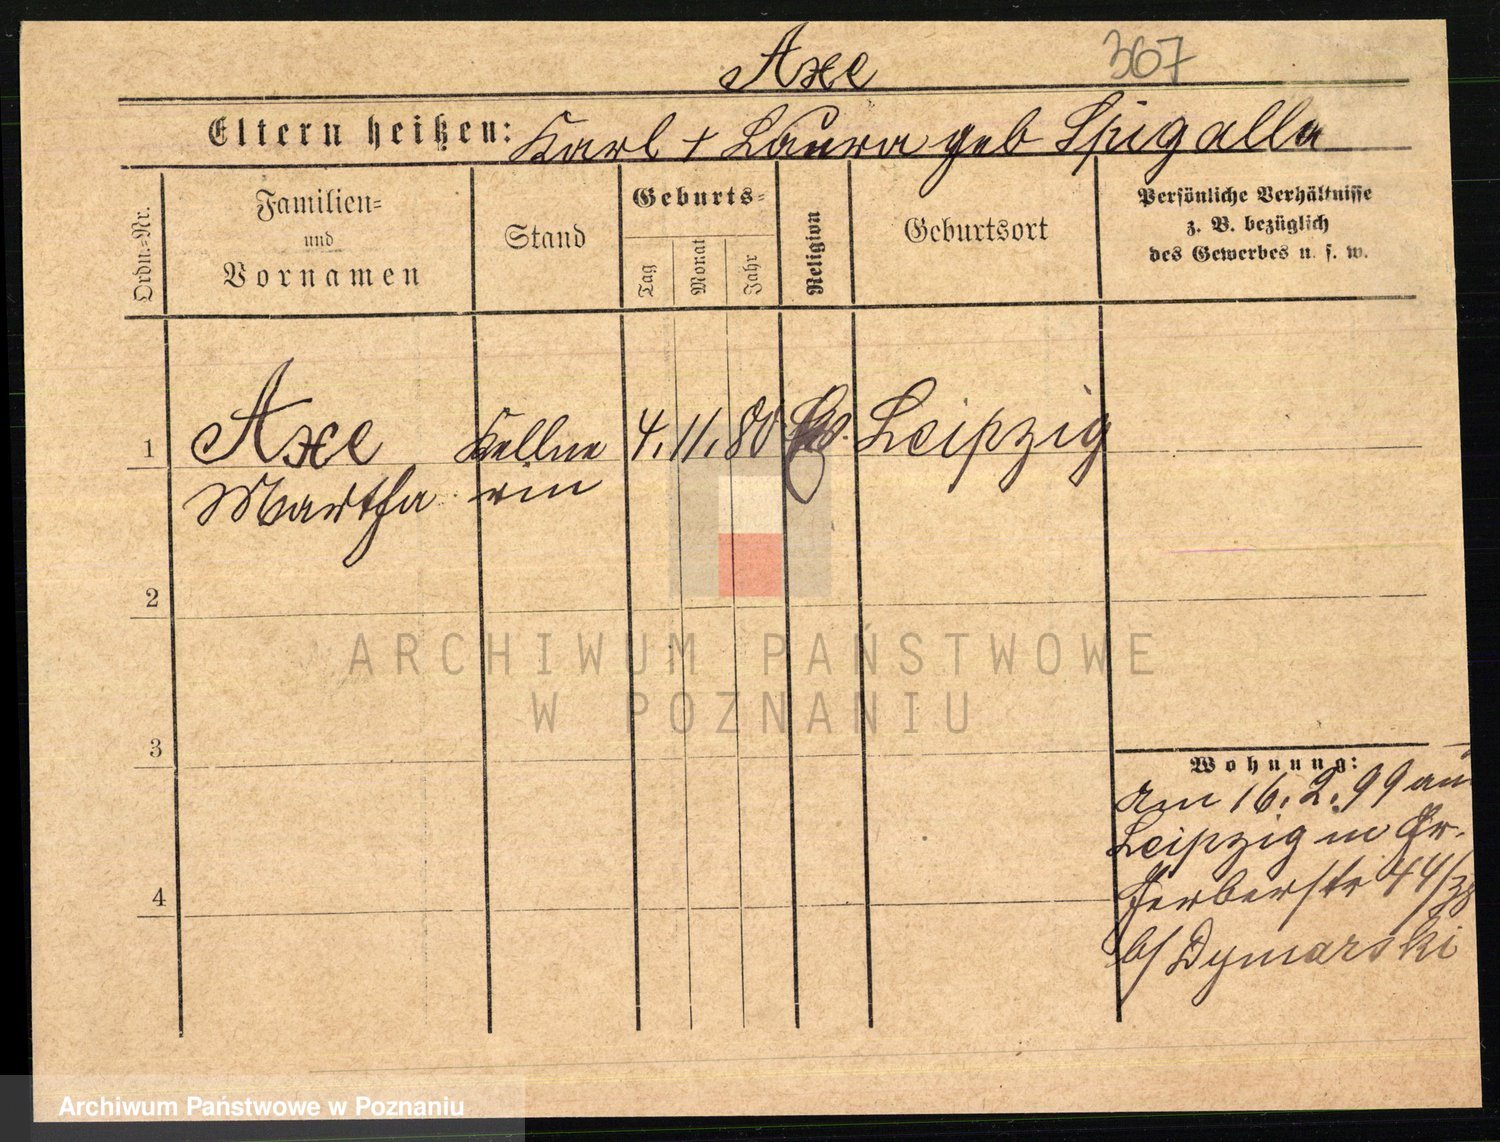 Axe 367
Eltern heißen: Karl + Laura geb Spigalla
Ordn.=Nr.
Familien=
und
Vornamen
Stand
Geburts=
Tag
Monat
Jahr
Religion
Geburtsort
Persönliche Verhältnisse
z. B. bezüglich
des Gewerbes u. s. w.
1 Axe Kellne 4. 11. 80 Ev. Leipzig
Martha rin
2
3
4
Wohnung:
Am 16. 2. 99 aus
Leipzig in Gr.
Gerberstr 44/
b/ Dymarski
ARCHIWUM PAŃSTWOWE
W POZNANIU
Archiwum Państwowe w Poznaniu